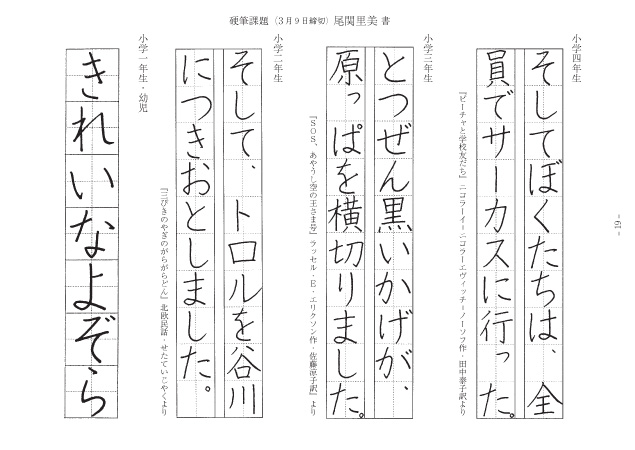 硬筆課題（3月9日締切）尾関里美 書
小学四年生
そしてぼくたちは、全
員でサーカスに行った。
『ビーチャと学校友だち』ニコラーイ＝ニコラーエヴィッチ＝ノーソフ作・田中泰子訳より
小学三年生
とつぜん黒いかげが、
原っぱを横切りました。
『SOS、あやうし空の王さま号』ラッセル・E・エリクソン作・佐藤凉子訳』より
小学二年生
そして、トロルを谷川
につきおとしました。
『三びきのやぎのがらがらどん』北欧民話・せたていじやくより
小学一年生・幼児
きれいなよぞら
- 61 -